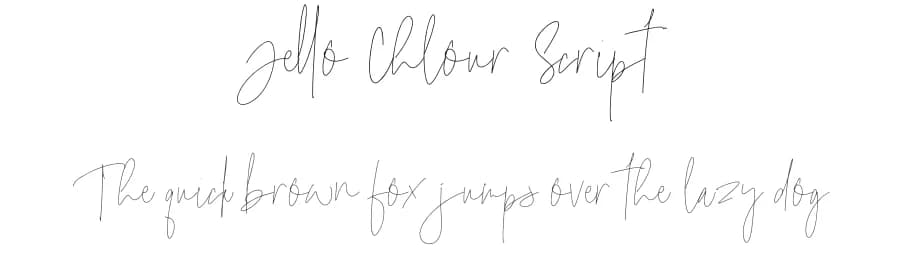 Jello Chlour Script
The quick brown fox jumps over the lazy dog